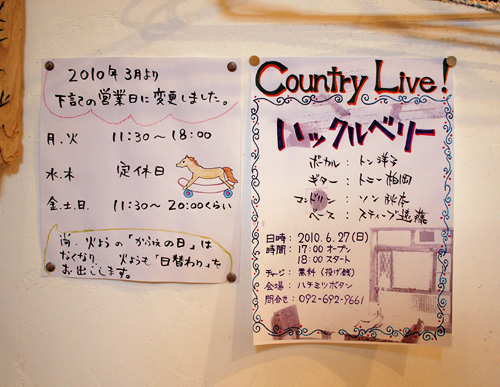 2010年 3月より
下記の営業日に変更しました。
月.火 11:30~18:00
水.木 定休日
金.土.日. 11:30~20:00くらい
尚.火ようの「かふぇの日」は
なくなり. 火ようも「日替わり」を
お出しします。
Country Live!
ハックルベリー
ボーカル : トン洋子
ギター : トミー梅岡
マンドリン : ソン秋本
ベース : スティーブ遠藤
日時 : 2010.6.27(日)
時間 : 17:00 オープン
18:00 スタート
チャージ : 無料 (投げ銭)
会場 : ハチミツボタン
問合せ : 092-692-9661